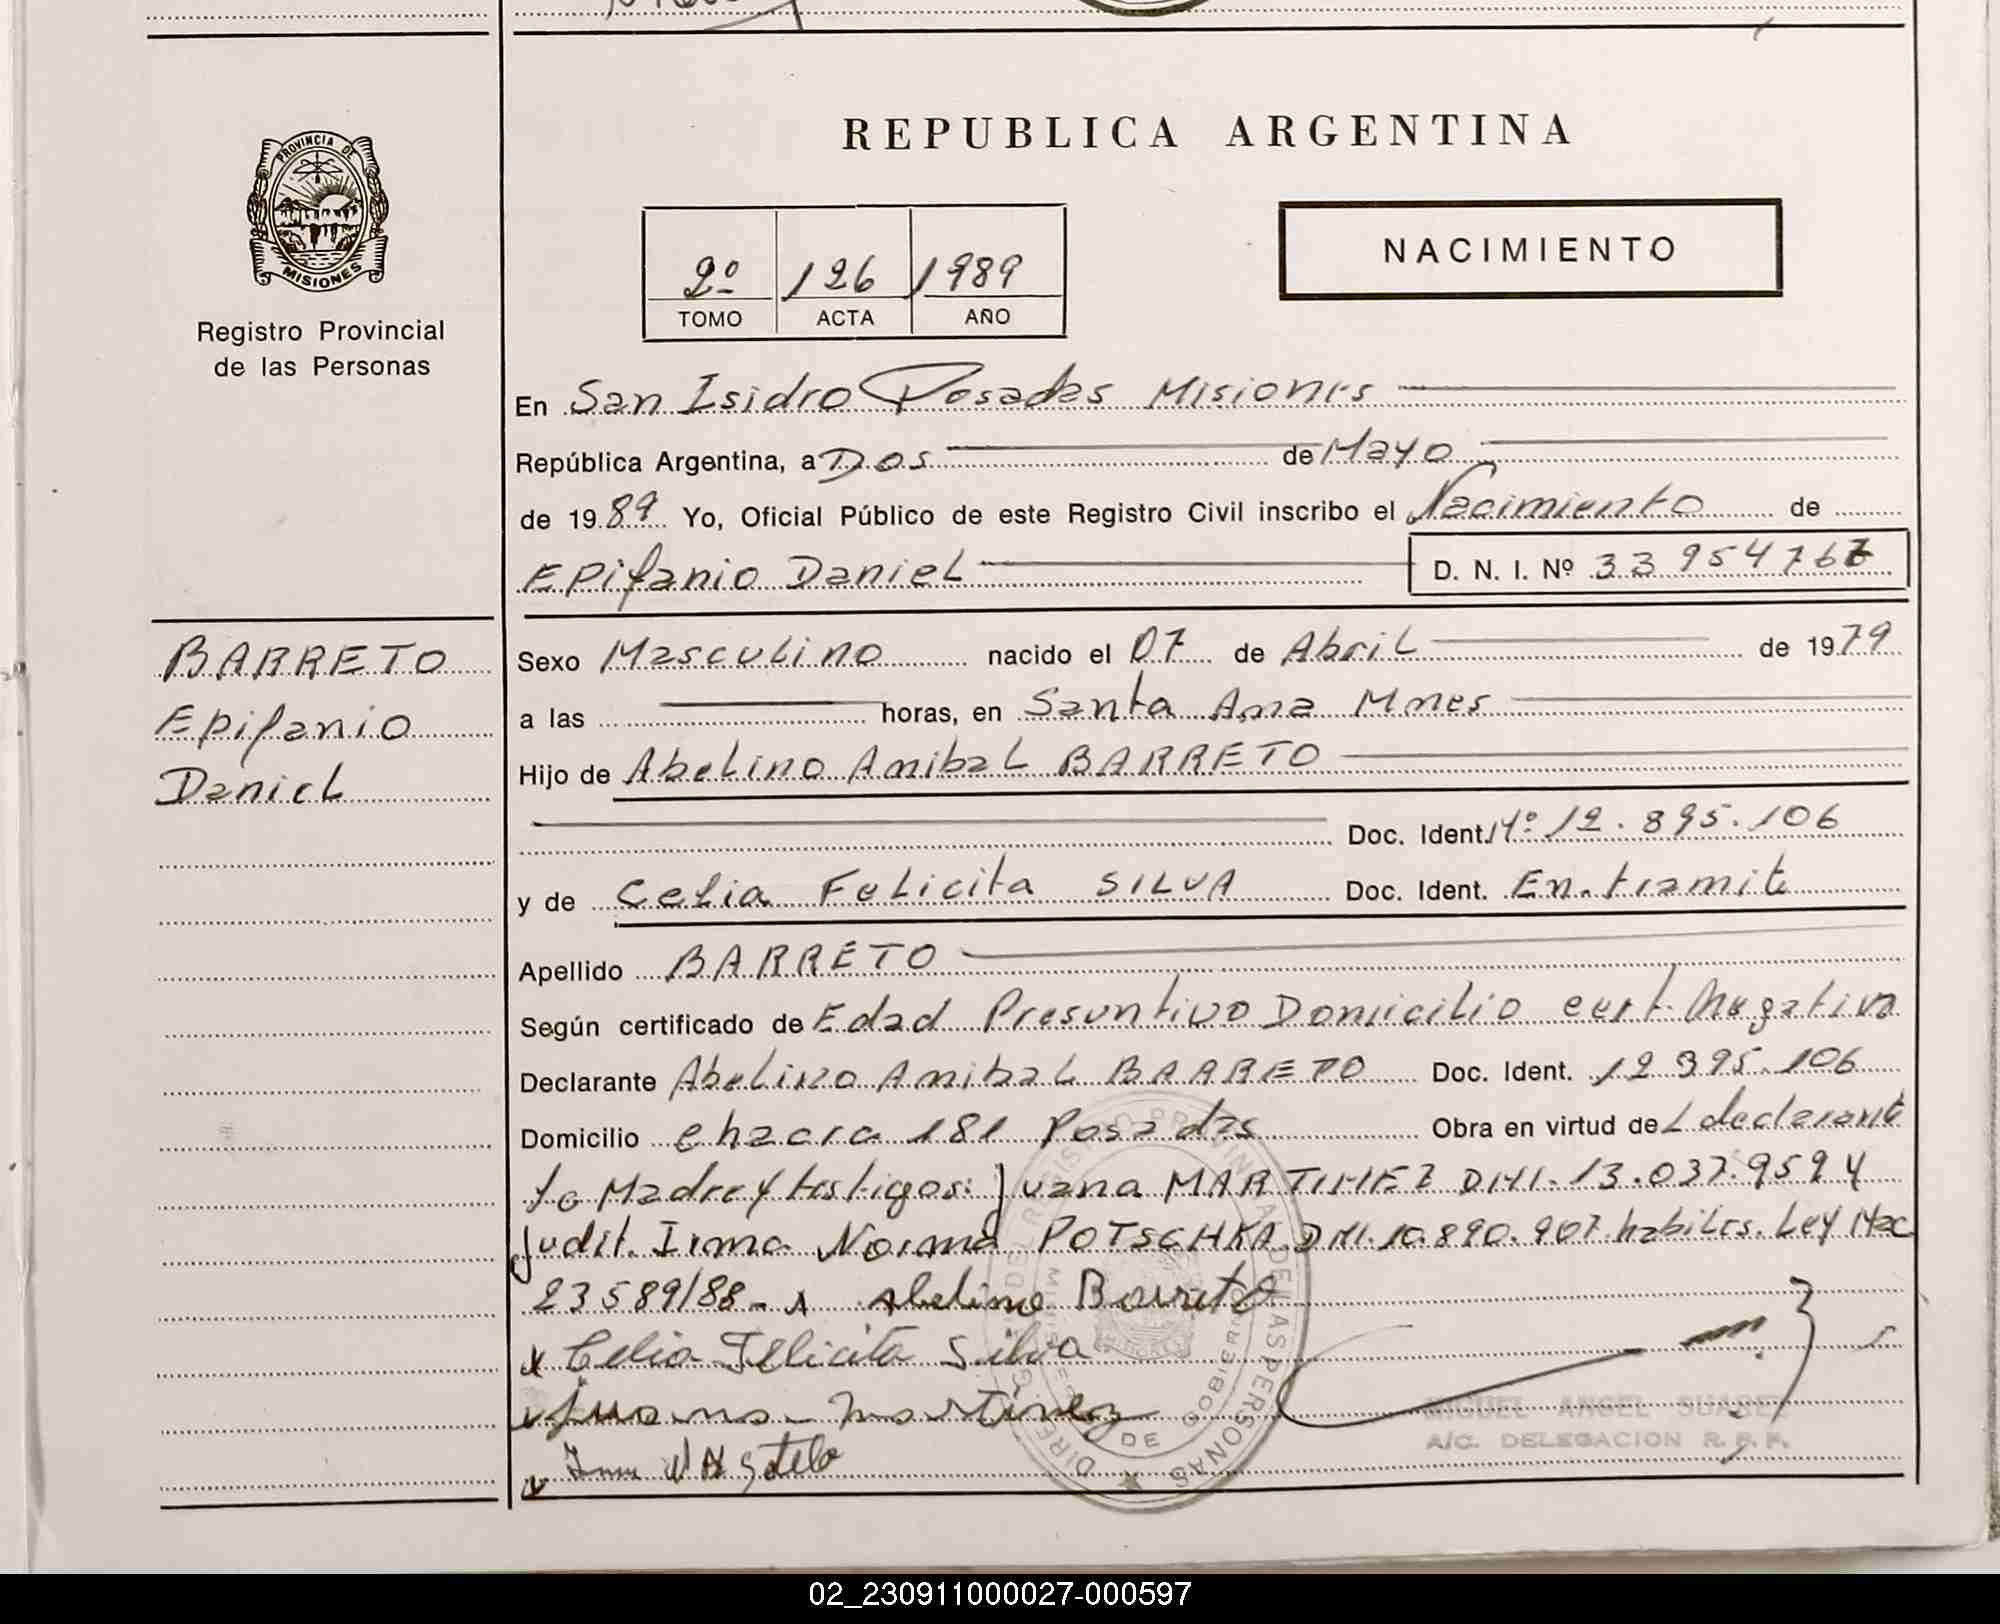 REPUBLICA ARGENTINA
PROVINCIA DE MISIONES
Registro Provincial
de las Personas
NACIMIENTO
2º 126 1989
TOMO ACTA AÑO
En San Isidro Posadas Misiones
República Argentina, a Dos de Mayo
de 1989 Yo, Oficial Público de este Registro Civil inscribo el Nacimiento de
Epifanio Daniel D. N. I. Nº 33 954 767
BARRETO
Epifanio
Daniel
Sexo Masculino nacido el 07 de Abril de 1979
a las horas, en Santa Ana Mnes
Hijo de Abelino Anibal BARRETO
Doc. Ident. Nº 12.895.106
y de Celia Felicita SILVA Doc. Ident. En tramite
Apellido BARRETO
Según certificado de Edad Presuntivo Domicilio cert. Negativo
Declarante Abelino Anibal BARRETO Doc. Ident. 12 395.106
Domicilio chacra 181 Posadas Obra en virtud de L declarante
La Madre y testigos: Juana MARTINEZ DNI. 13.037.959 y
Judit Irma Norma POTSCHKA DNI. 10.890.907. habiles. Ley Nac
23589/88 - x Abelino Barreto
x Celia Felicita Silva
x Juana Martinez
MIGUEL ANGEL SUAREZ
A/C. DELEGACION R. P. P.
02_230911000027-000597